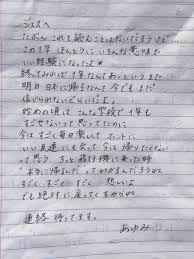 ジェスへ
たぶんこれを読むことはないだろうけど…
この1年 ほんとうに いろんな意味で
いい経験になったよ
終ってみれば 1年なんてあっというまで
明日 日本に帰るなんて 今でもまだ
信じられないぐらいだよ。
始めの頃は こんな学校で 1年も
すごせないって思ってたのに
今は すごく毎日楽しくて ホントに
いい友達にも会って 今は 帰りたくない
って思う きっと 飛行機に乗った時
"本当に帰るんだ"ってわかるんだろうね
すごく、すごく すごく 悲しいよ
でも絶対に 戻ってくるからね。
連絡 待ってます。
あゆみ